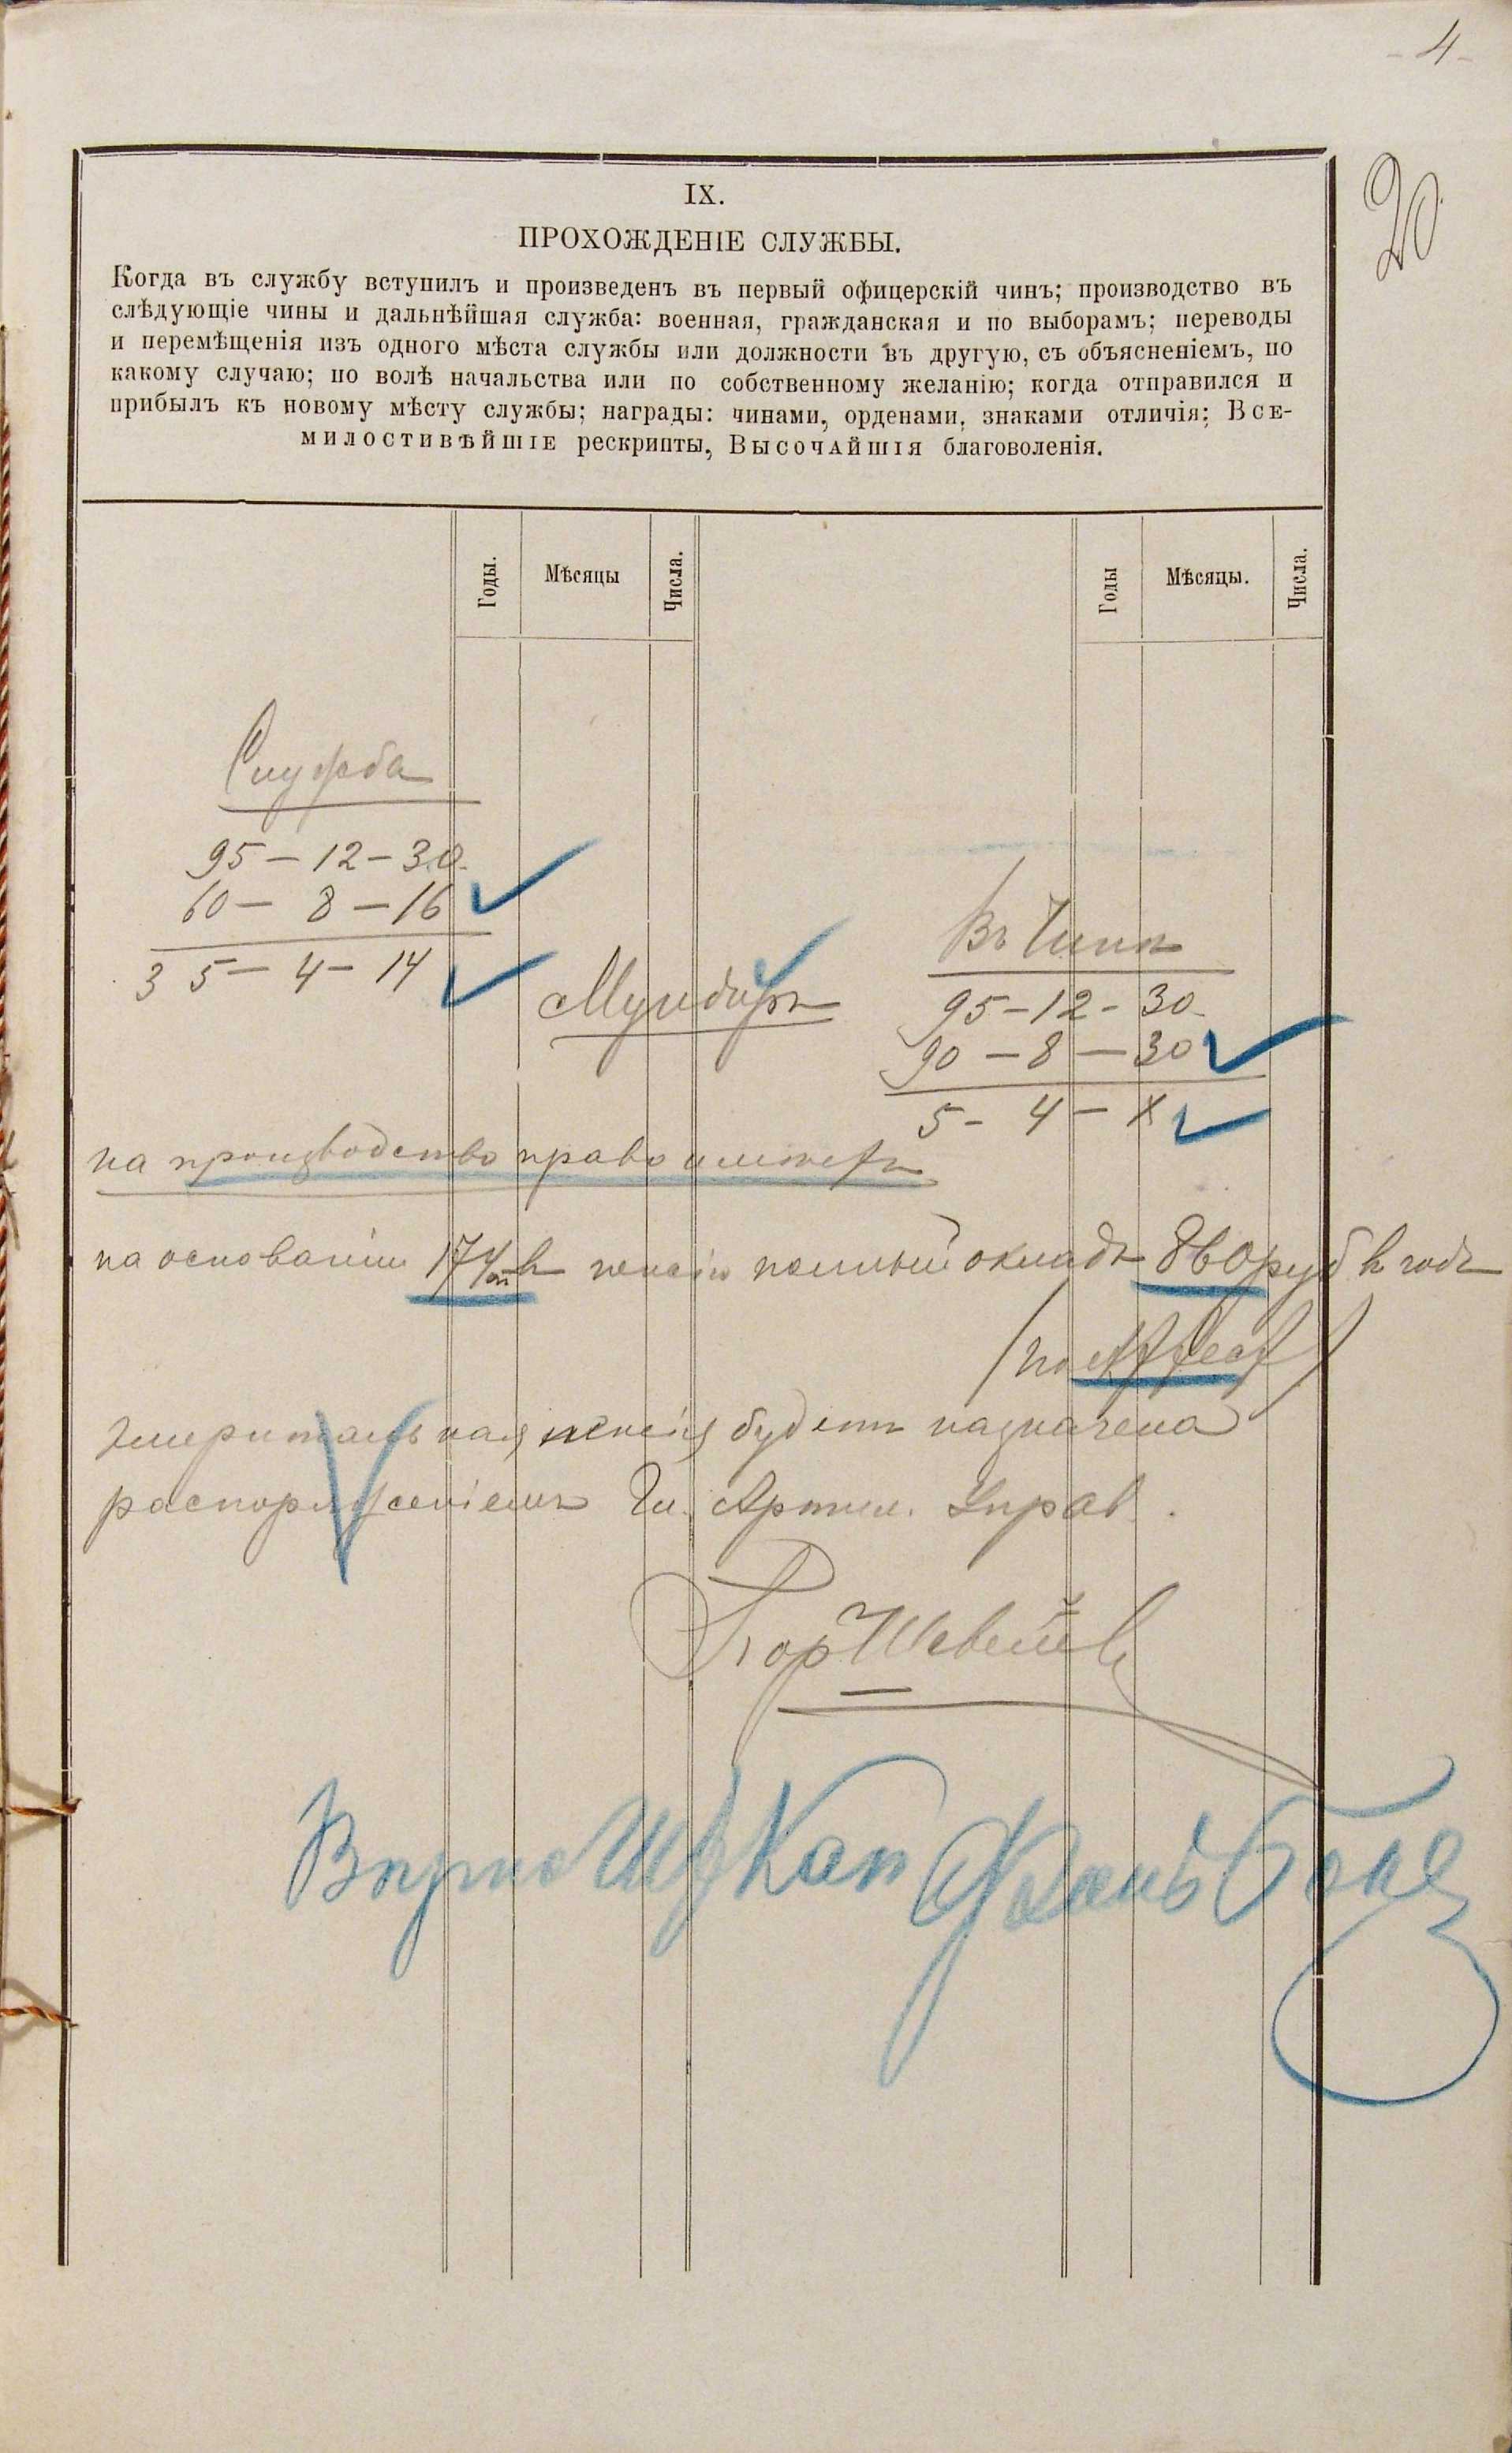 - 4 -
20.
IX.
ПРОХОЖДЕНІЕ СЛУЖБЫ.
Когда въ службу вступилъ и произведенъ въ первый офицерскій чинъ; производство въ
слѣдующіе чины и дальнѣйшая служба: военная, гражданская и по выборамъ; переводы
и перемѣщенія изъ одного мѣста службы или должности въ другую, съ объясненіемъ, по
какому случаю; по волѣ начальства или по собственному желанію; когда отправился и
прибылъ къ новому мѣсту службы; награды: чинами, орденами, знаками отличія; Все-
милостивѣйшіе рескрипты, Высочайшія благоволенія.
Годы. Мѣсяцы Числа. Годы Мѣсяцы. Числа.
Служба
95 — 12 — 30.
60 — 8 — 16
35 — 4 — 14
Мундиръ
Въ Чинѣ
95 — 12 - 30.
90 — 8 — 30
5 - 4 — х
на производство право имѣетъ
на основаніи 174 въ пенсію полный окладъ 860 руб въ годъ
эмеритальная пенсія будетъ назначена
распоряженіемъ Гл. Артил. Управ.
Вѣрно Кап Фонъ